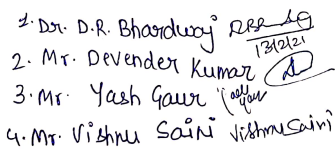 1. Dr. D.R. Bhardwaj
13/2/21
2. Mr. Devender Kumar
3. Mr. Yash Gaur
4. Mr. Vishnu Saini Vishnu Saini